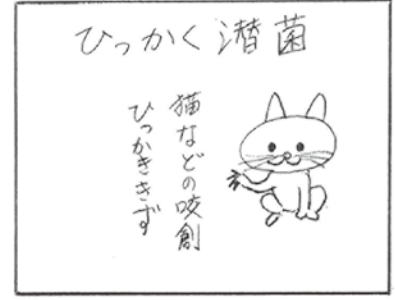 ひっかく潜菌
猫などの咬創
ひっかききず